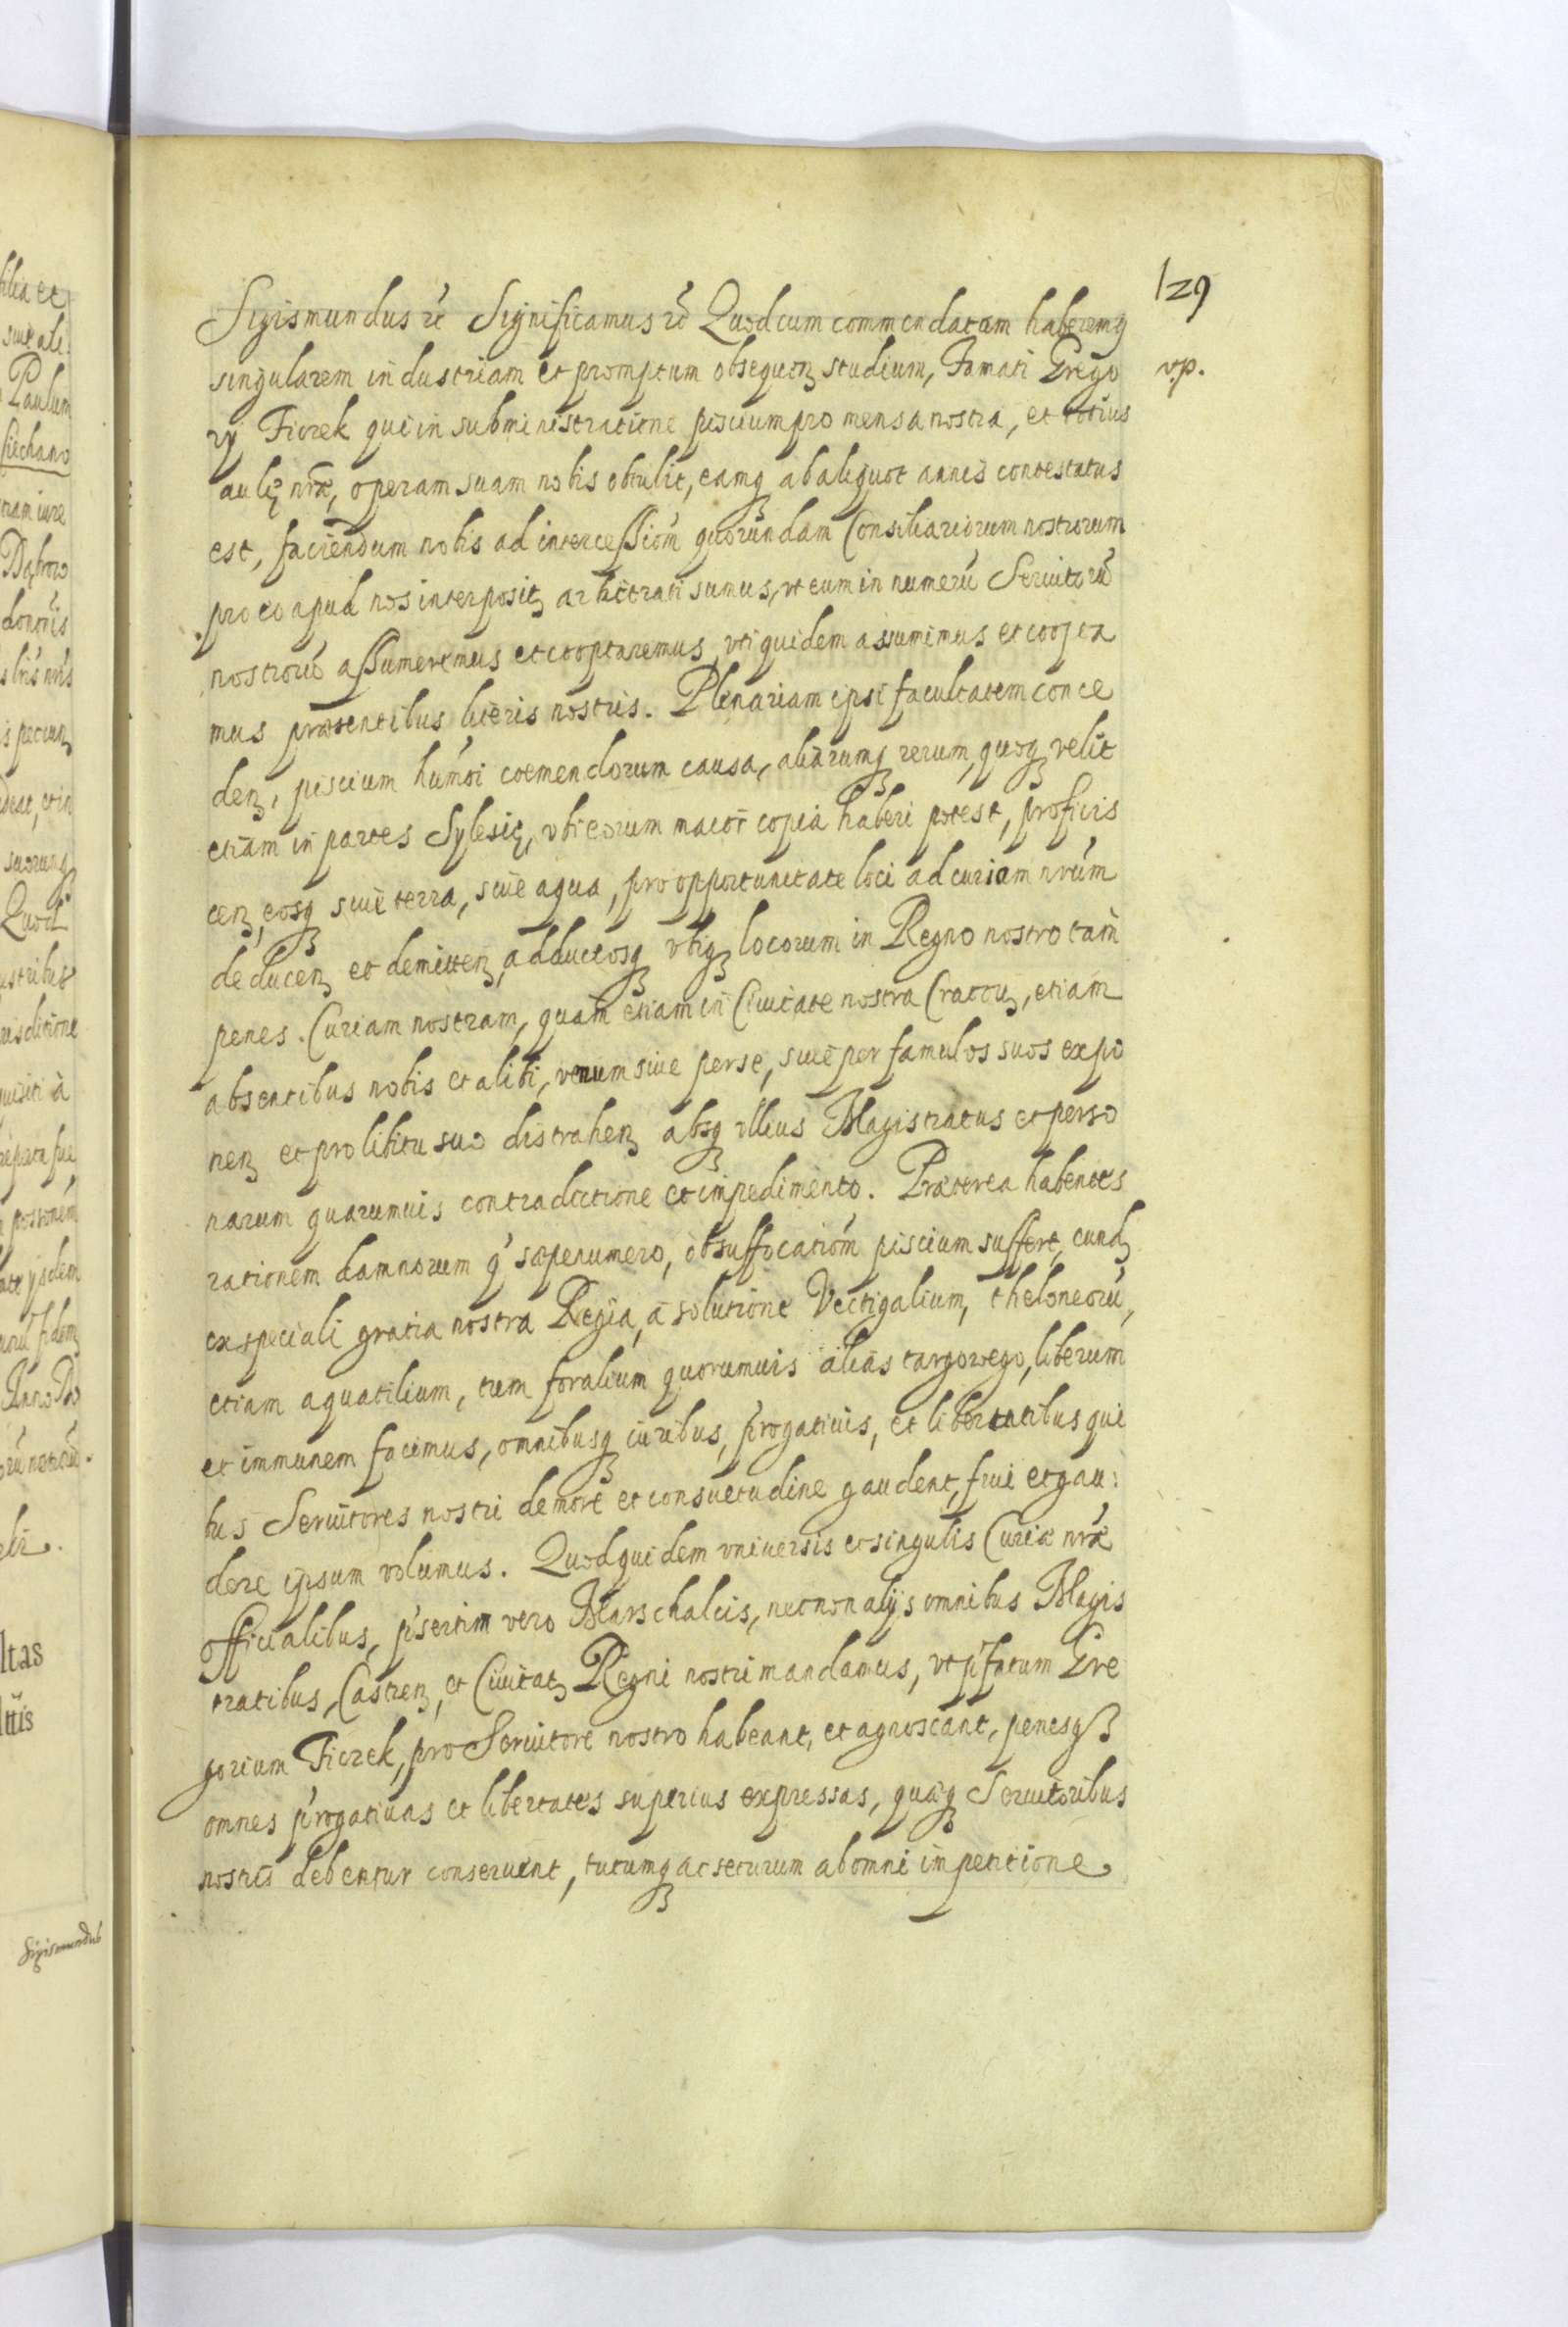 129
Sigismundus etc Significamus etc Quod cum commendatam haberemq
singularem industriam et promptum obsequen studium, Famati Grego
rij Fiorek qui in subministratione piscium pro mensa nostra, et totius
aulę nrae, operam suam nobis obtulit, eamq ab aliquot annis contestatus
est, faciendum nobis ad intercessiom quorundam Consiliariorum nostrorum
pro eo apud nos interposit arbitrati sumus, vt eum in numeru Seruitoru
nostroru assumeremus et cooptaremus, vti quidem assumimus et coopta
mus praesentibus literis nostris. Plenariam ipsi facultatem conce
den, piscium humoi coemendorum causa, aliarumq rerum, quoq velit
etiam in partes Sylesię, vbi eorum maior copia haberi potest, proficis
cen, eosq siue terra, siue aqua, pro opportunitate loci ad curiam nram
deducen et demitten, adductosq vbiq locorum in Regno nostro tam
penes Curiam nostram, quam etiam in Ciuitate nostra Cracou, etiam
absentibus nobis et alibi, venum siue per se, siue per famulos suos expo
nen et pro libitu suo distrahen absq vllius Magistratus et perso
narum quarumuis contradictione et impedimento. Praeterea habentes
rationem damnorum q saepenumero, ob suffocatiom piscium suffert, eund
ex speciali gratia nostra Regia, a solutione Vectigalium, theloneoru,
etiam aquatilium, tum foralium quorumuis alias targowego, liberum
et immunem facimus, omnibusq iuribus, progatiuis, et libertatibus qui
bus Seruitores nostri de more et consuetudine gaudent, frui et gau:
dere ipsum volumus. Quod quidem vniuersis et singulis Curiae nrae
Officialibus, psertim vero Marschalcis, necnon alijs omnibus Magis
tratibus, Castren, et Ciuitat Regni nostri mandamus, vt pfatum Gre
gorium Fiorek, pro Seruitore nostro habeant, et agnoscant, penesq
omnes progatiuas et libertates superius expressas, quaeq Seruitoribus
nostris debentur conseruent, tutumq ac securum ab omni impetitione
v.p.
Paulum
Sigismundus